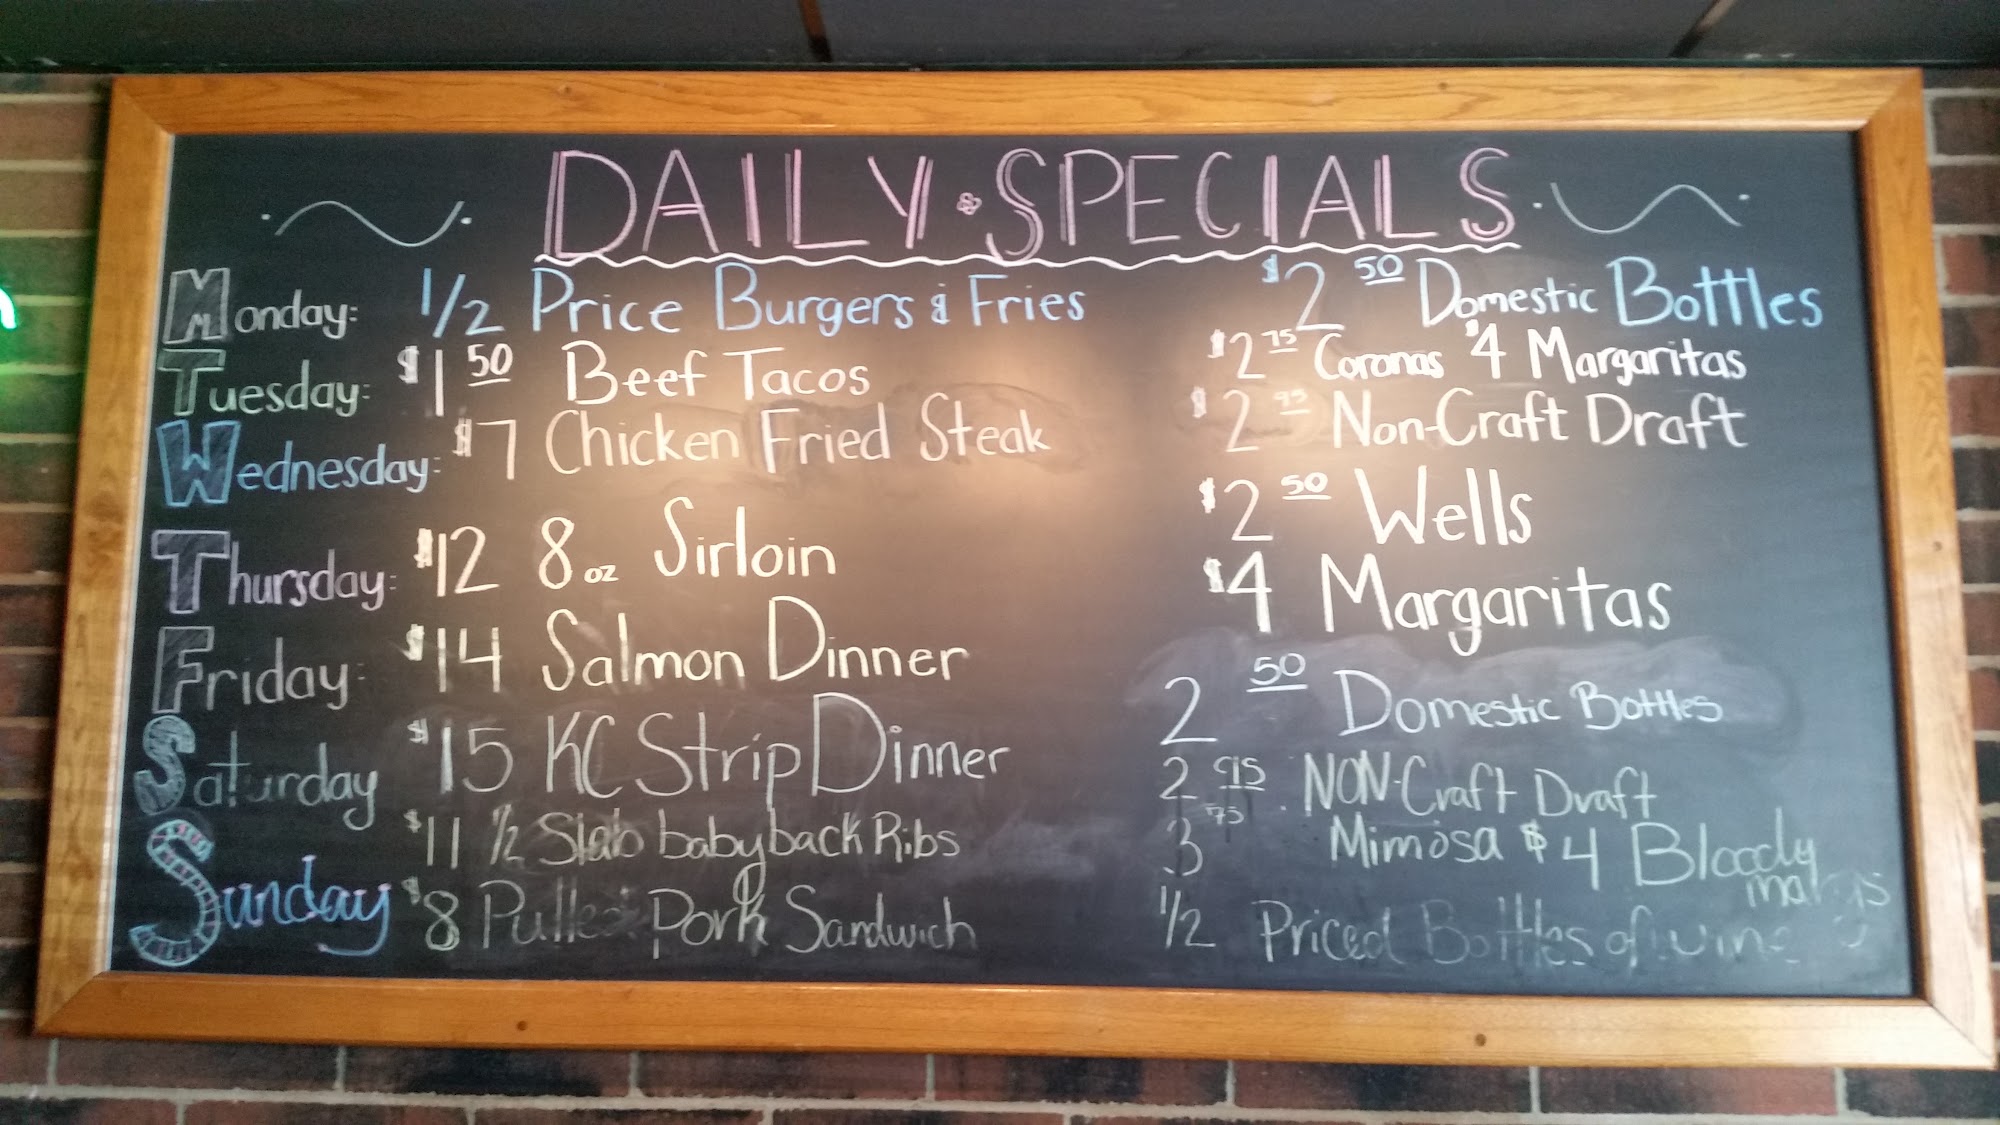 DAILY SPECIALS
Monday: 1/2 Price Burgers & Fries $2 50 Domestic Bottles
Tuesday: $1 50 Beef Tacos $2 75 Coronas $4 Margaritas
Wednesday: $7 Chicken Fried Steak $2 95 Non-Craft Draft
$2 50 Wells
Thursday: $12 8oz Sirloin $4 Margaritas
Friday: $14 Salmon Dinner 2 50 Domestic Bottles
Saturday $15 KC Strip Dinner 2 95 NON-Craft Draft
$11 1/2 Slab babyback Ribs 3 75 Mimosa $4 Bloody marys
Sunday $8 Pulled Pork Sandwich 1/2 Priced Bottles of wine